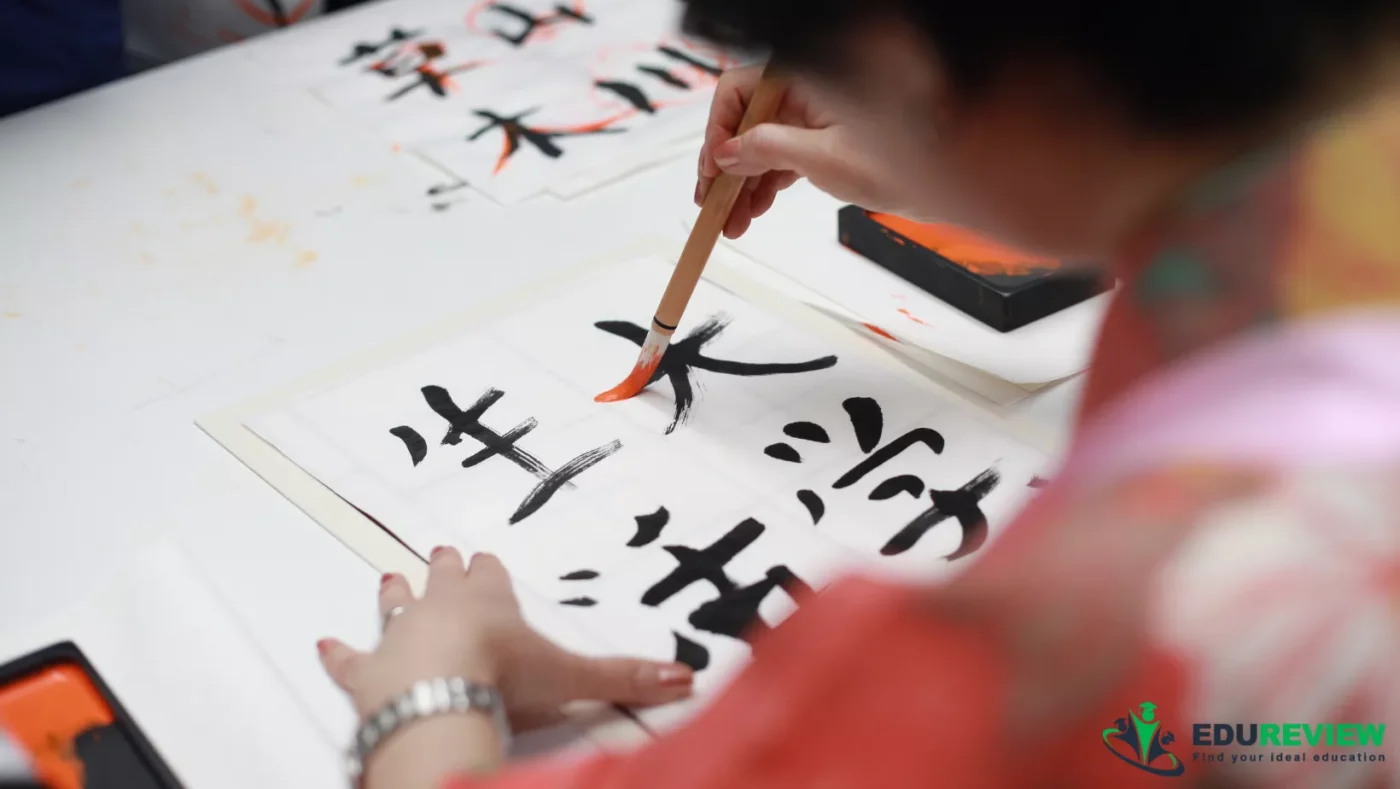 山川
草木
大学
生活
EDUREVIEW
Find your ideal education